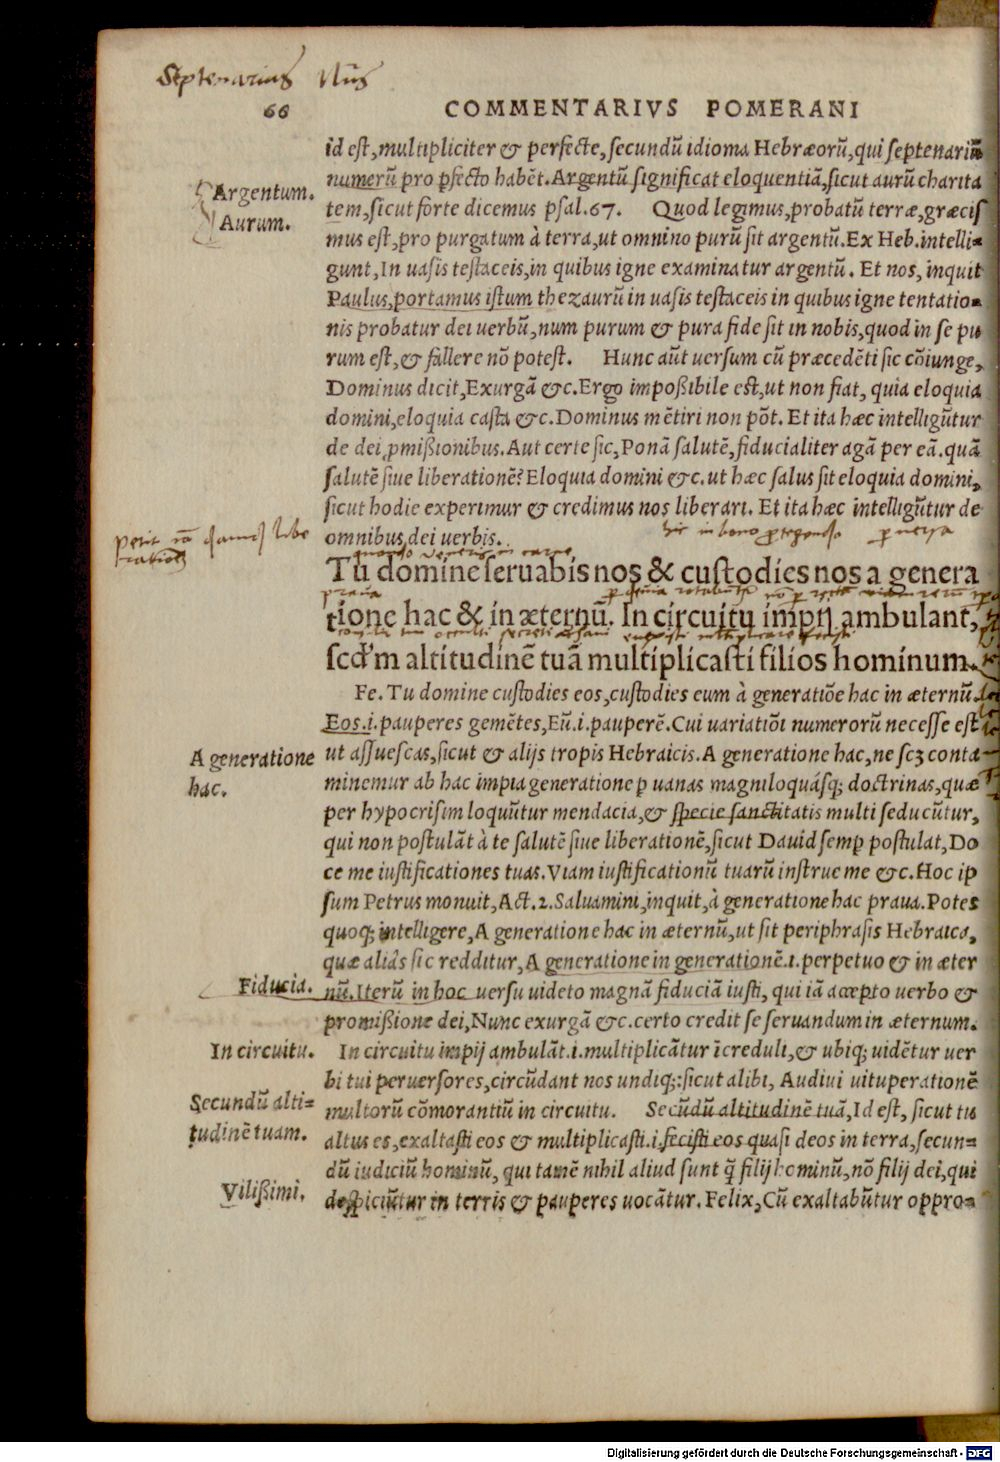 Septenarius Nūs
66
COMMENTARIVS POMERANI
id est, multipliciter & perfecte, secundū idioma Hebræorū, qui septenariū
numerū pro ꝑfecto habēt. Argentū significat eloquentiā, sicut aurū charita
Argentum.
tem, sicut forte dicemus psal. 67. Quod legimus, probatū terræ, græcis
Aurum.
mus est, pro purgatum à terra, ut omnino purū sit argentū. Ex Heb. intelli-
gunt, In uasis testaceis, in quibus igne examinatur argentū. Et nos, inquit
Paulus, portamus istum thezaurū in uasis testaceis in quibus igne tentatio-
nis probatur dei uerbū, num purum & pura fide sit in nobis, quod in se pu
rum est, & fallere nō potest. Hunc aūt uersum cū præcedēti sic cōiunge,
Dominus dicit, Exurgā &c. Ergo impoßibile est, ut non fiat, quia eloquia
domini, eloquia casta &c. Dominus mētiri non pōt. Et ita hæc intelligūtur
de dei ꝓmißionibus. Aut certe sic, Ponā salutē, fiducialiter agā per eā. quā
salutē siue liberationē? Eloquia domini &c. ut hæc salus sit eloquia domini,
sicut hodie experimur & credimus nos liberari. Et ita hæc intelligūtur de
omnibus dei uerbis.
Tu domine seruabis nos & custodies nos a genera
tione hac & in æternū. In circuitu impij ambulant,
scd'm altitudinē tuā multiplicasti filios hominum.
Fe. Tu domine custodies eos, custodies eum à generatiōe hac in æternū
Eos .i. pauperes gemētes, Eū .i. pauperē. Cui uariatiōi numerorū necesse est
A generatione
ut assuescas, sicut & alijs tropis Hebraicis. A generatione hac, ne scꝫ conta
hac.
minemur ab hac impia generatione ꝑ uanas magniloquásqꝫ doctrinas, quæ
per hypocrisim loquūtur mendacia, & specie sanctitatis multi seducūtur,
qui non postulāt à te salutē siue liberationē, sicut Dauid semꝑ postulat, Do
ce me iustificationes tuas. Viam iustificationū tuarū instrue me &c. Hoc ip
sum Petrus monuit, Act. 2. Saluamini, inquit, à generatione hac praua. Potes
quoqꝫ intelligere, A generatione hac in æternū, ut sit periphrasis Hebraica,
quæ aliâs sic redditur, A generatione in generationē .i. perpetuo & in æter
Fiducia.
nū. Iterū in hoc uersu uideto magnā fiduciā iusti, qui iā accepto uerbo &
promißione dei, Nunc exurgā &c. certo credit se seruandum in æternum.
In circuitu.
In circuitu impij ambulāt .i. multiplicātur īcreduli, & ubiqꝫ uidētur uer
bi tui peruersores, circūdant nos undiqꝫ: sicut alibi, Audiui uituperationē
Secundū alti-
multorū cōmorantiū in circuitu. Secūdū altitudinē tuā, Id est, sicut tu
tudinē tuam.
altus es, exaltasti eos & multiplicasti .i. fecisti eos quasi deos in terra, secun-
dū iudiciū hominū, qui tamē nihil aliud sunt q̄ filij hominū, nō filij dei, qui
Vilißimi.
despiciūtur in terris & pauperes uocātur. Felix, Cū exaltabūtur oppro-
Digitalisierung gefördert durch die Deutsche Forschungsgemeinschaft - DFG